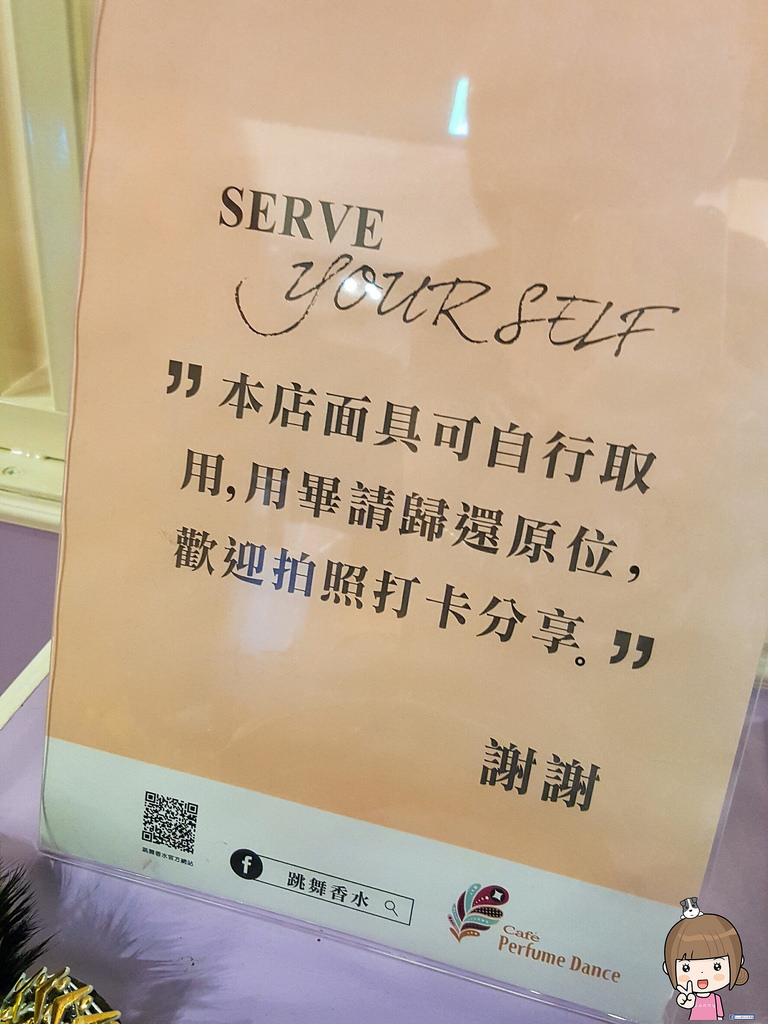 SERVE
YOURSELF
”本店面具可自行取
用,用畢請歸還原位,
歡迎拍照打卡分享。”
謝謝
跳舞香水官方網站
f 跳舞香水
Café
Perfume Dance